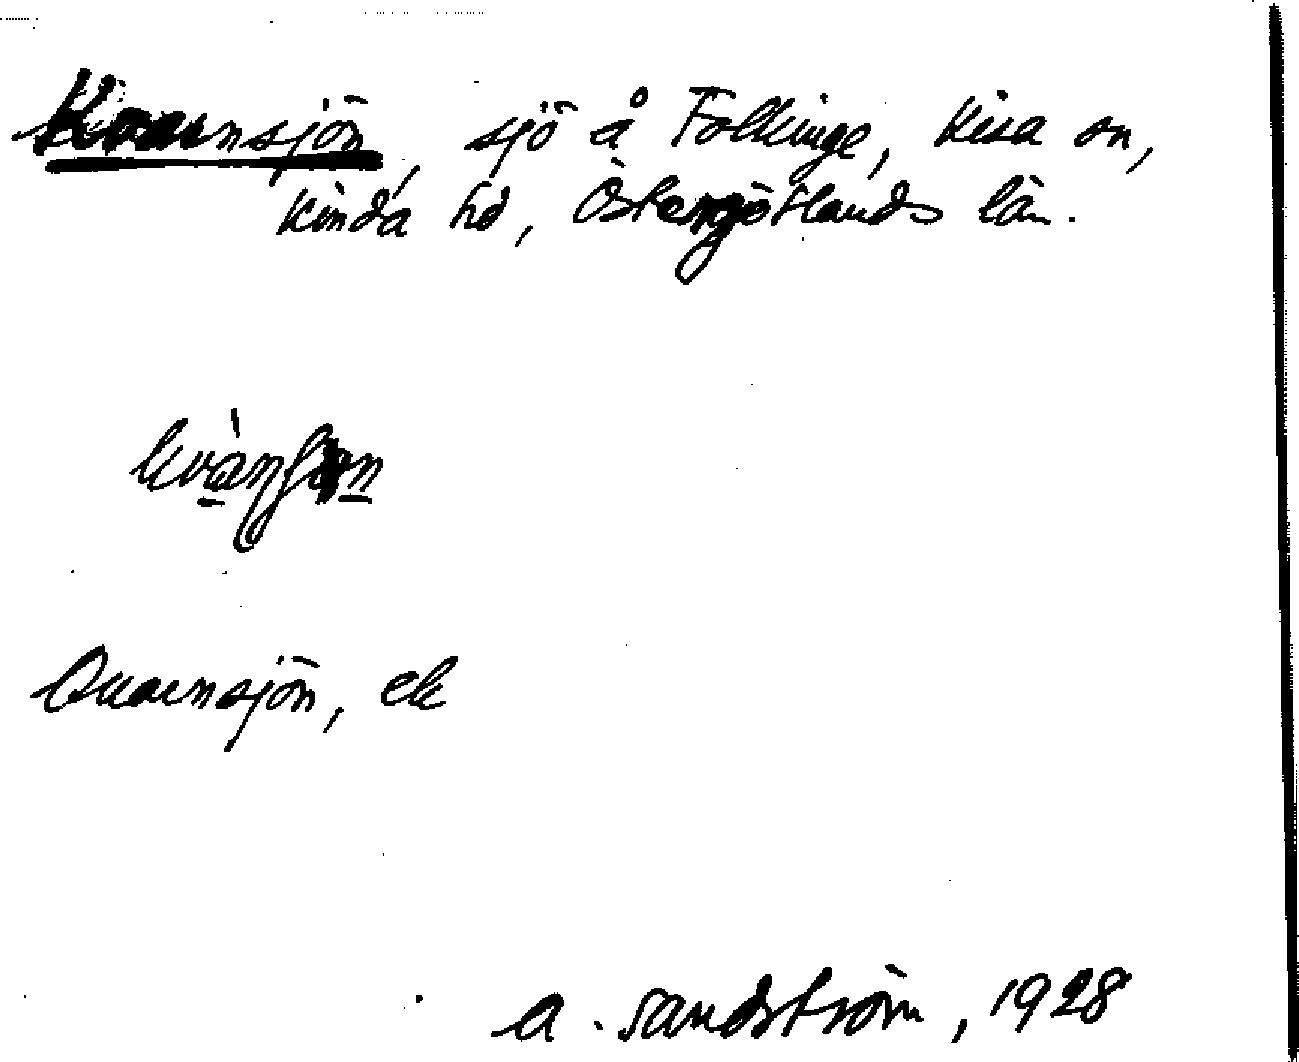 Kvarnsjön, sjö å Folkinge, Kisa sn,
Kinda hd, Östergötlands län.
Quarnsjön, ek
A. Sandström, 1928